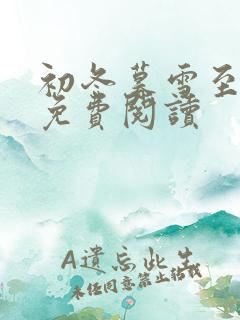 初冬暮雪至
免費閱讀
A遺忘此生
未经同意禁止转载